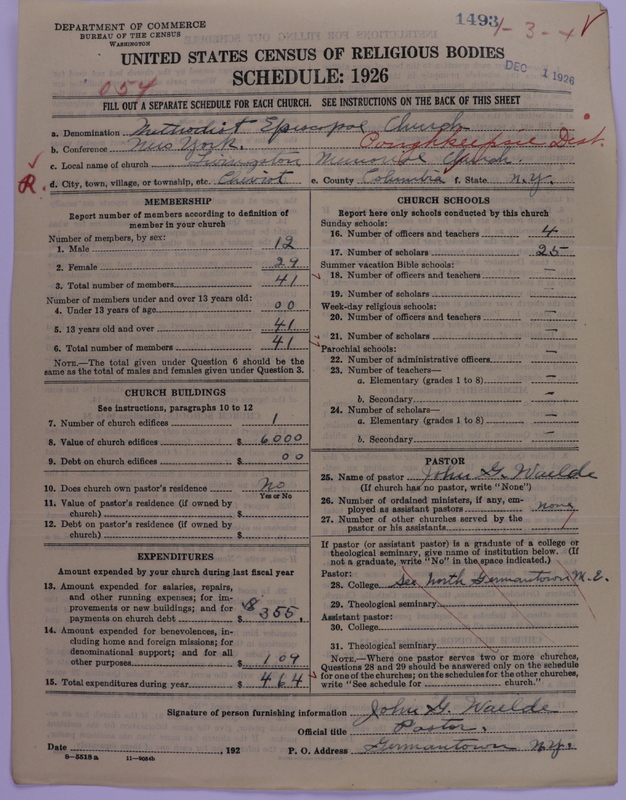 DEPARTMENT OF COMMERCE
BUREAU OF THE CENSUS
WASHINGTON
1493
1-3-4
DEC 1 1926
UNITED STATES CENSUS OF RELIGIOUS BODIES
SCHEDULE: 1926
054
FILL OUT A SEPARATE SCHEDULE FOR EACH CHURCH. SEE INSTRUCTIONS ON THE BACK OF THIS SHEET
a. Denomination Methodist Episcopal Church
b. Conference New York. Poughkeepsie Dist.
c. Local name of church Livingston Memorial Church.
R. d. City, town, village, or township, etc. Cheviot e. County Columbia f. State N.Y.
MEMBERSHIP
Report number of members according to definition of member in your church
Number of members, by sex:
1. Male 12
2. Female 29
3. Total number of members 41
Number of members under and over 13 years old:
4. Under 13 years of age 00
5. 13 years old and over 41
6. Total number of members 41
NOTE.—The total given under Question 6 should be the
same as the total of males and females given under Question 3.
CHURCH BUILDINGS
See instructions, paragraphs 10 to 12
7. Number of church edifices 1
8. Value of church edifices $ 6000
9. Debt on church edifices $ 00
10. Does church own pastor's residence No
Yes or No
11. Value of pastor's residence (if owned by
church) $
12. Debt on pastor's residence (if owned by
church) $
EXPENDITURES
Amount expended by your church during last fiscal year
13. Amount expended for salaries, repairs,
and other running expenses; for im-
provements or new buildings; and for
payments on church debt $ 355.
14. Amount expended for benevolences, in-
cluding home and foreign missions; for
denominational support; and for all
other purposes $ 109
15. Total expenditures during year $ 464
CHURCH SCHOOLS
Report here only schools conducted by this church
Sunday schools:
16. Number of officers and teachers 4
17. Number of scholars 25
Summer vacation Bible schools:
18. Number of officers and teachers —
19. Number of scholars —
Week-day religious schools:
20. Number of officers and teachers —
21. Number of scholars —
Parochial schools:
22. Number of administrative officers —
23. Number of teachers—
a. Elementary (grades 1 to 8) —
b. Secondary —
24. Number of scholars—
a. Elementary (grades 1 to 8) —
b. Secondary —
PASTOR
25. Name of pastor John G. Waelde
(If church has no pastor, write "None")
26. Number of ordained ministers, if any, em-
ployed as assistant pastors none
27. Number of other churches served by the
pastor or his assistants
If pastor (or assistant pastor) is a graduate of a college or
theological seminary, give name of institution below. (If
not a graduate, write "No" in the space indicated.)
Pastor:
28. College See North Germantown M.E.
29. Theological seminary
Assistant pastor:
30. College
31. Theological seminary
NOTE.—Where one pastor serves two or more churches,
Questions 28 and 29 should be answered only on the schedule
for one of the churches; on the schedules for the other churches,
write "See schedule for church."
Signature of person furnishing information John G. Waelde
Official title Pastor.
Date , 192 P. O. Address Germantown N.Y.
8—5513 a 11—9034b